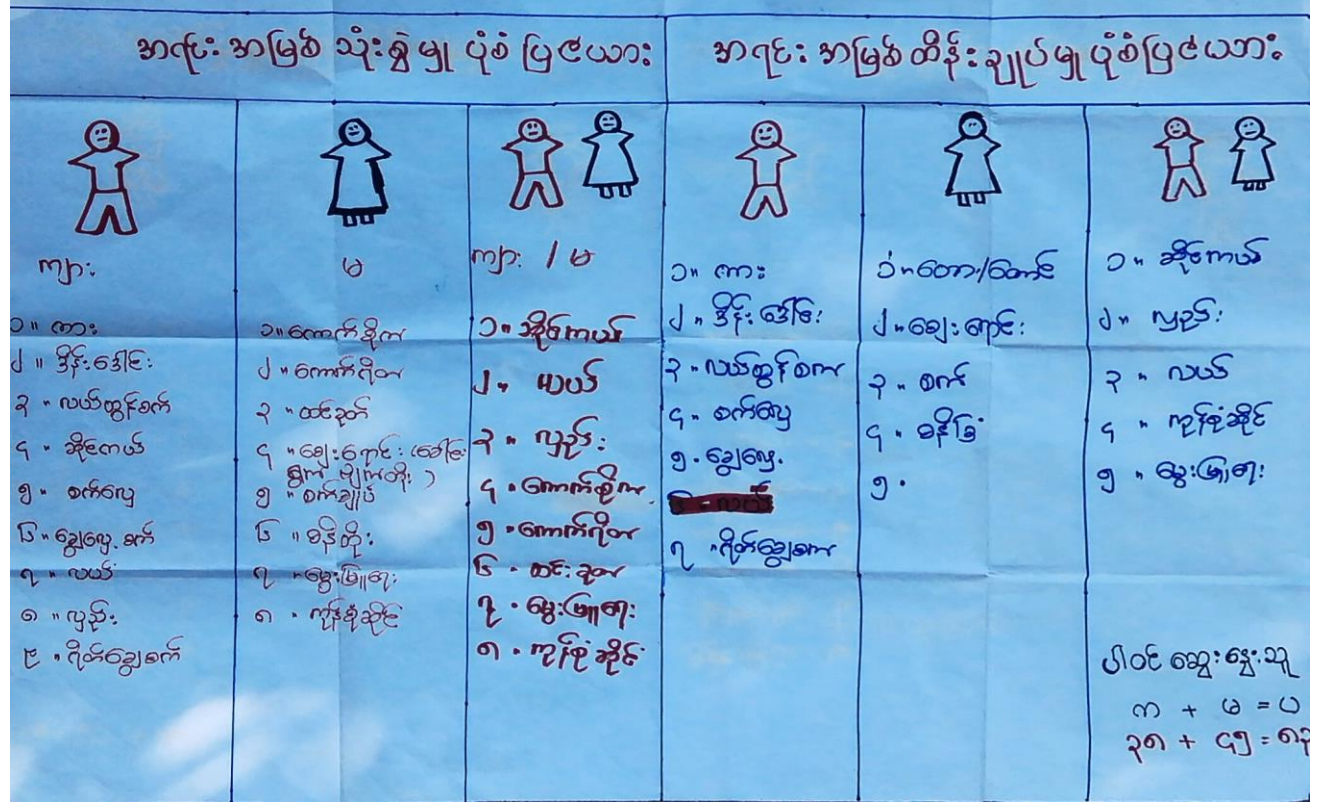 အရင်း အမြစ် သုံးစွဲမှု ပုံစံ ပြဇယား
အရင်း အမြစ် ထိန်းချုပ်မှု ပုံစံပြဇယား
ကျား
၁။ ကား
၂။ ဒိန်းဒေါင်း
၃။ လယ်ထွန်စက်
၄။ ဆိုင်ကယ်
၅။ စက်လှေ
၆။ ချွေလှေ့စက်
၇။ လယ်
၈။ လှည်း
၉။ ရိတ်ချွေစက်
မ
၁။ ကောက်စိုက်
၂။ ကောက်ရိတ်
၃။ ထင်းခုတ်
၄။ ဈေးရောင်း (ခေါင်း
ရွက် မျက်တိုး)
၅။ စက်ချုပ်
၆။ ဓနိတိုး
၇။ မွေးမြူရေး
၈။ ကုန်စုံဆိုင်
ကျား / မ
၁။ ဆိုင်ကယ်
၂။ လယ်
၃။ လှည်း
၄။ ကောက်စိုက်
၅။ ကောက်ရိတ်
၆။ ထင်းခုတ်
၇။ မွေးမြူရေး
၈။ ကုန်စုံဆိုင်
၁။ ကား
၂။ ဒိန်းဒေါင်း
၃။ လယ်ထွန်စက်
၄။ စက်လှေ
၅။ ချွေလှေ့
၇။ ရိတ်ချွေစက်
၂။ ဈေးရောင်း
၃။ စက်
၄။ ဓနိခြံ
၅။
၁။ ဆိုင်ကယ်
၂။ လှည်း
၃။ လယ်
၄။ ကုန်စုံဆိုင်
၅။ မွေးမြူရေး
ပါဝင် ဆွေးနွေးသူ
က + မ = ပ
၃၈ + ၄၅ = ၈၃